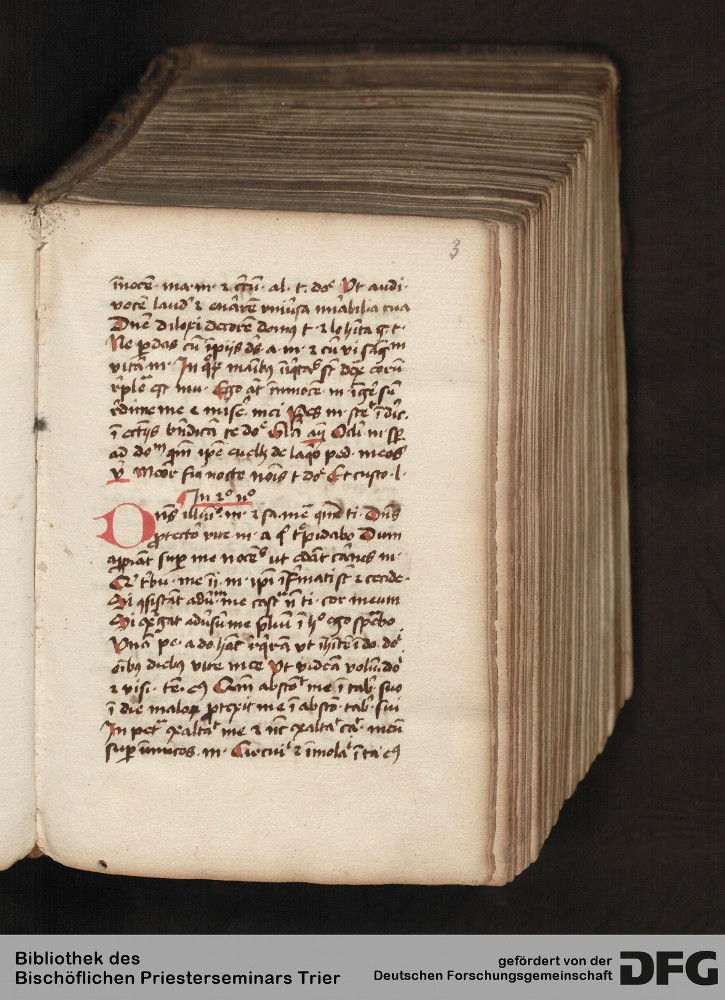 3
īnocē· ma· m· & c̄cū· al· t· do᷑ Ut audi·
vocē laud᷑ & enārē vniūsa mr̄abilia tua
Dn̄e dilexi decorē domꝰ t· & lo hīta g· t·
Ne ꝑdas cū īpijs dꝰ a· m· & cū vi sāg̅
vitā m· In qͦꝝ maībꝰ īiq̄tat᷑ st̄ dex̄ eorū
r̄plē est mu· Ego at̄ īnnocē· m· īgr̄ sū
rdime me e miser᷑ mei Pes m· ste᷑ ī dir̄·
ī eccl̄ijs bn̄dicā te do᷑ Gl̄a Oculi m· sꝑ
ad doᵐ qm̄ ipē euell᷑ de laq̄o ped· meos
v̄ Memor fui nocte nōis t do᷑ Et custo· l·
In 2ᵒ nᵒ
Dn̄s illuīᵒ· m· & sa· me· quē ti· Dn̄s
ꝓtector vite m· a q trͤpidabo Dum
apꝓiāt suꝑ me nocēt᷑ ut edāt carnes m·
Qͥ tͥbu· me īi· m· ip̄i īfirmati st̄ & cecide·
Si ꝯsistāt adūᵐ me cast᷑ n̄ ti· cor meum
Si exͥgat adūsū me p̄liū ī hͦ ego sꝑabo
Unā pe· a do· hāc r̄qrā ut īhitē ī do· do᷑
oībꝰ diebꝰ vite mee Ut videā volūt do᷑
& visi· te· eꝰ Qm̄ abscō᷑ me ī tab᷑ suo
ī die maloꝝ ꝓtexit me ī abscō· tab᷑ sui
In pet᷑ exalta᷑ me & nc̄ exalta᷑ ca᷑ meū
suꝑ īimicos m· Circui᷑ & īmola᷑ ī ta᷑ eꝰ
Bibliothek des
Bischöflichen Priesterseminars Trier
gefördert von der
Deutschen Forschungsgemeinschaft
DFG